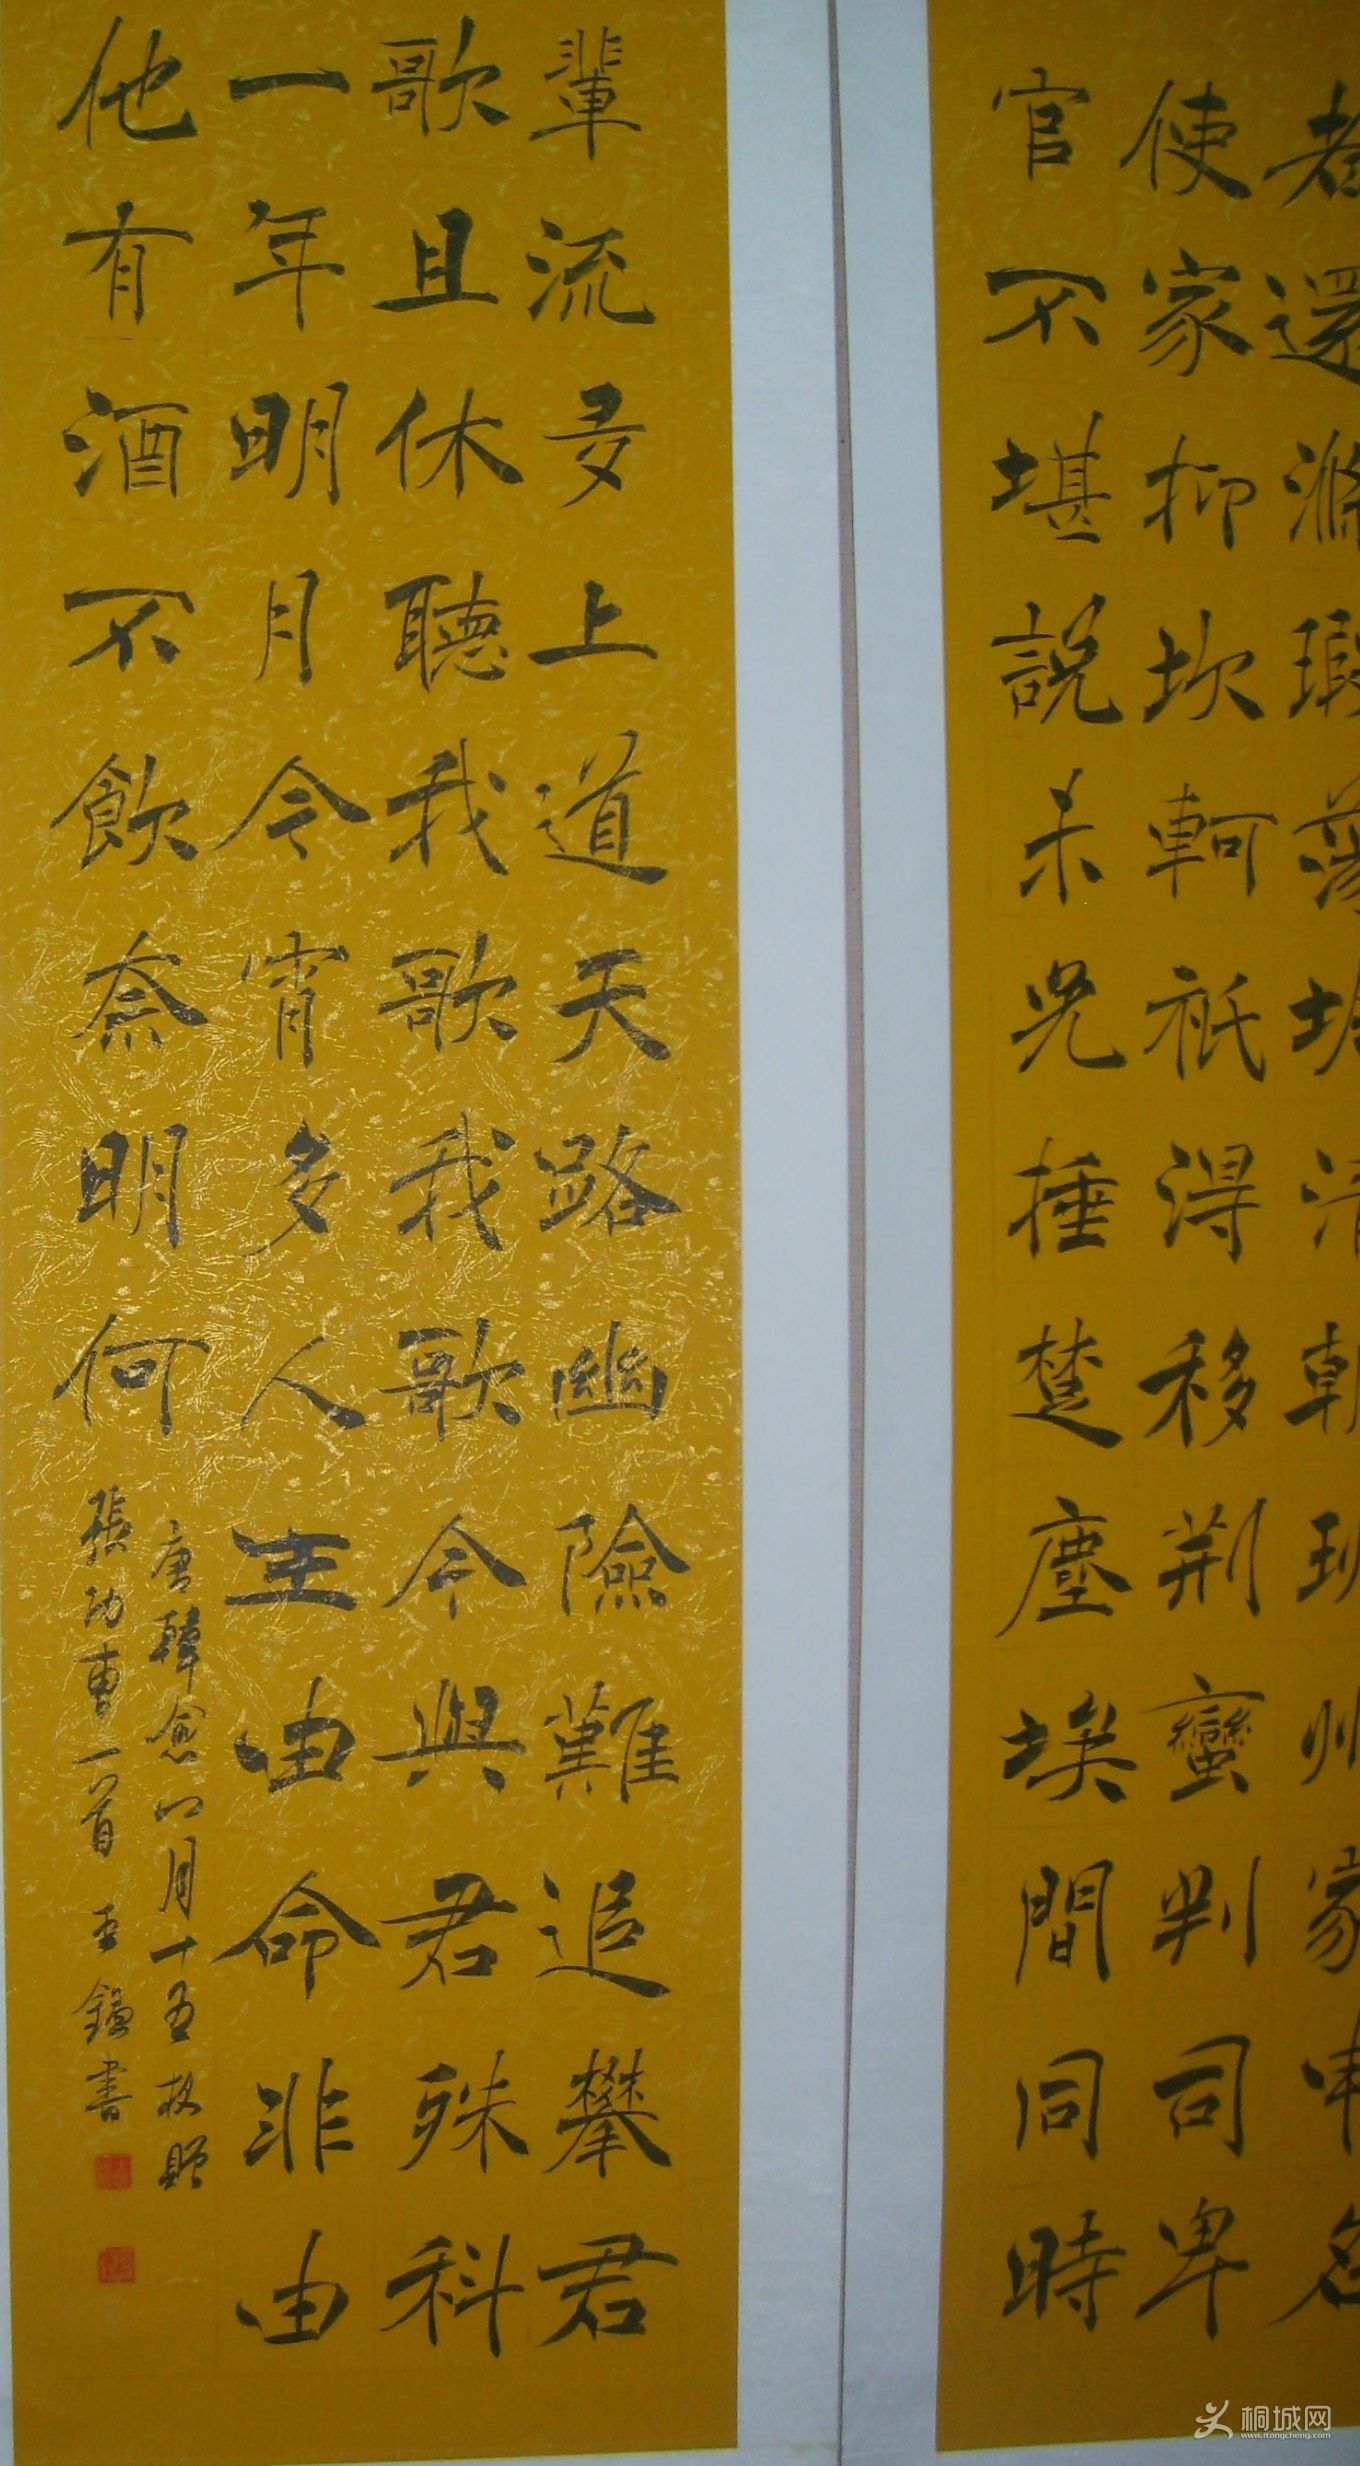 者還滌瑕蕩垢清朝班州家申名
使家抑坎軻祇得移荆蠻判司卑
官不堪説未免捶楚塵埃間同時
輩流多上道天路幽險難追攀君
歌且休聽我歌我歌今與君殊科
一年明月今宵多人生由命非由
他有酒不飲奈明何
唐韓愈八月十五夜贈
張功曹一首 王鎰書
桐城网
www.itongcheng.com